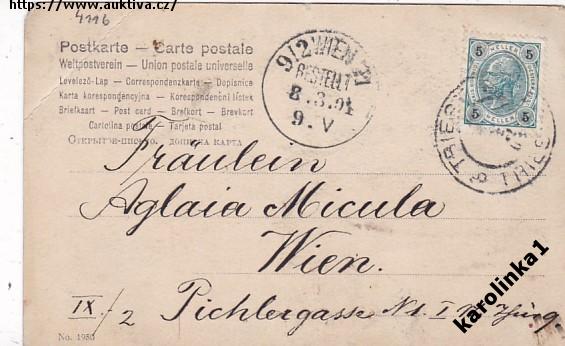 https://www.auktiva.cz/
4116
Postkarte — Carte postale
Weltpostverein — Union postale universelle
Levelező-Lap — Correspondenzkarte — Dopisnice
Karta korespondencyjna — Korespondenční lístek
Briefkaart — Post card — Brefkort — Brevkort
Cartolina postale — Tarjeta postal
Открытое-письмо. ДОПИСНА КАРТА
9/2 WIEN
BESTELLT
8.3.04
9.V
5 5
HELLER
5 HELLER 5
TRIEST
Fräulein
Aglaia Micula
Wien.
IX/2 Pichlergasse No 1 I
No. 1980
karolinka1